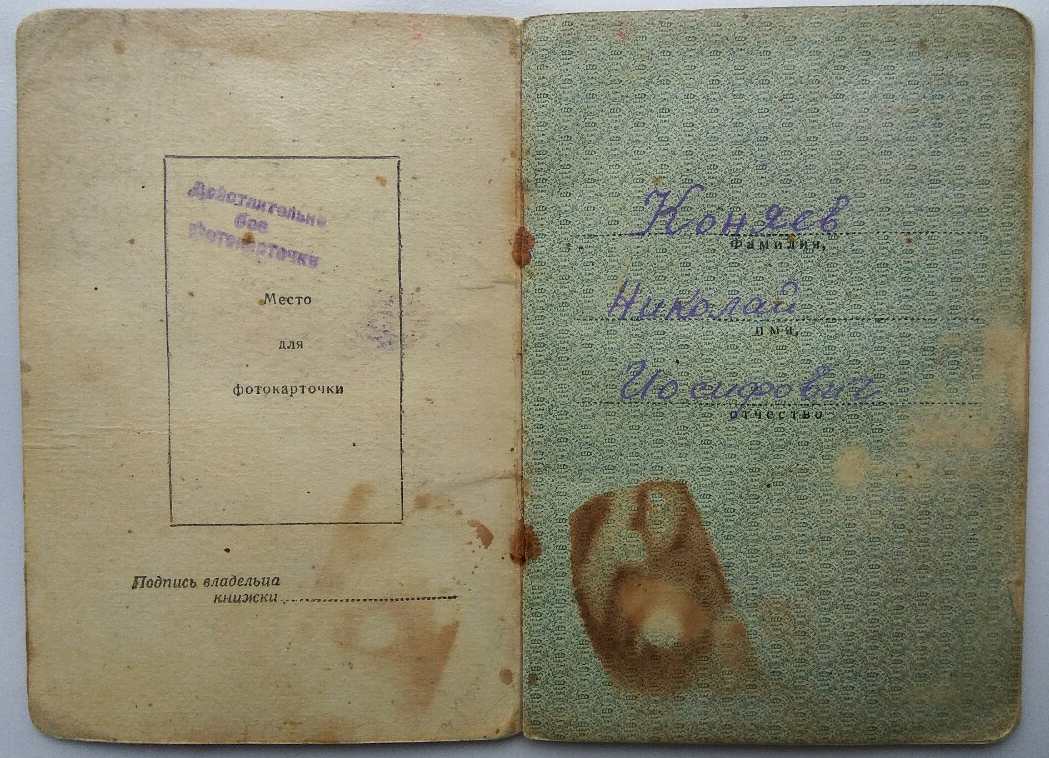 Действительно
без
фотокарточки
Место
для
фотокарточки
Подпись владельца
книжки
Коняев
Фамилия,
Николай
имя,
Иосифович
отчество